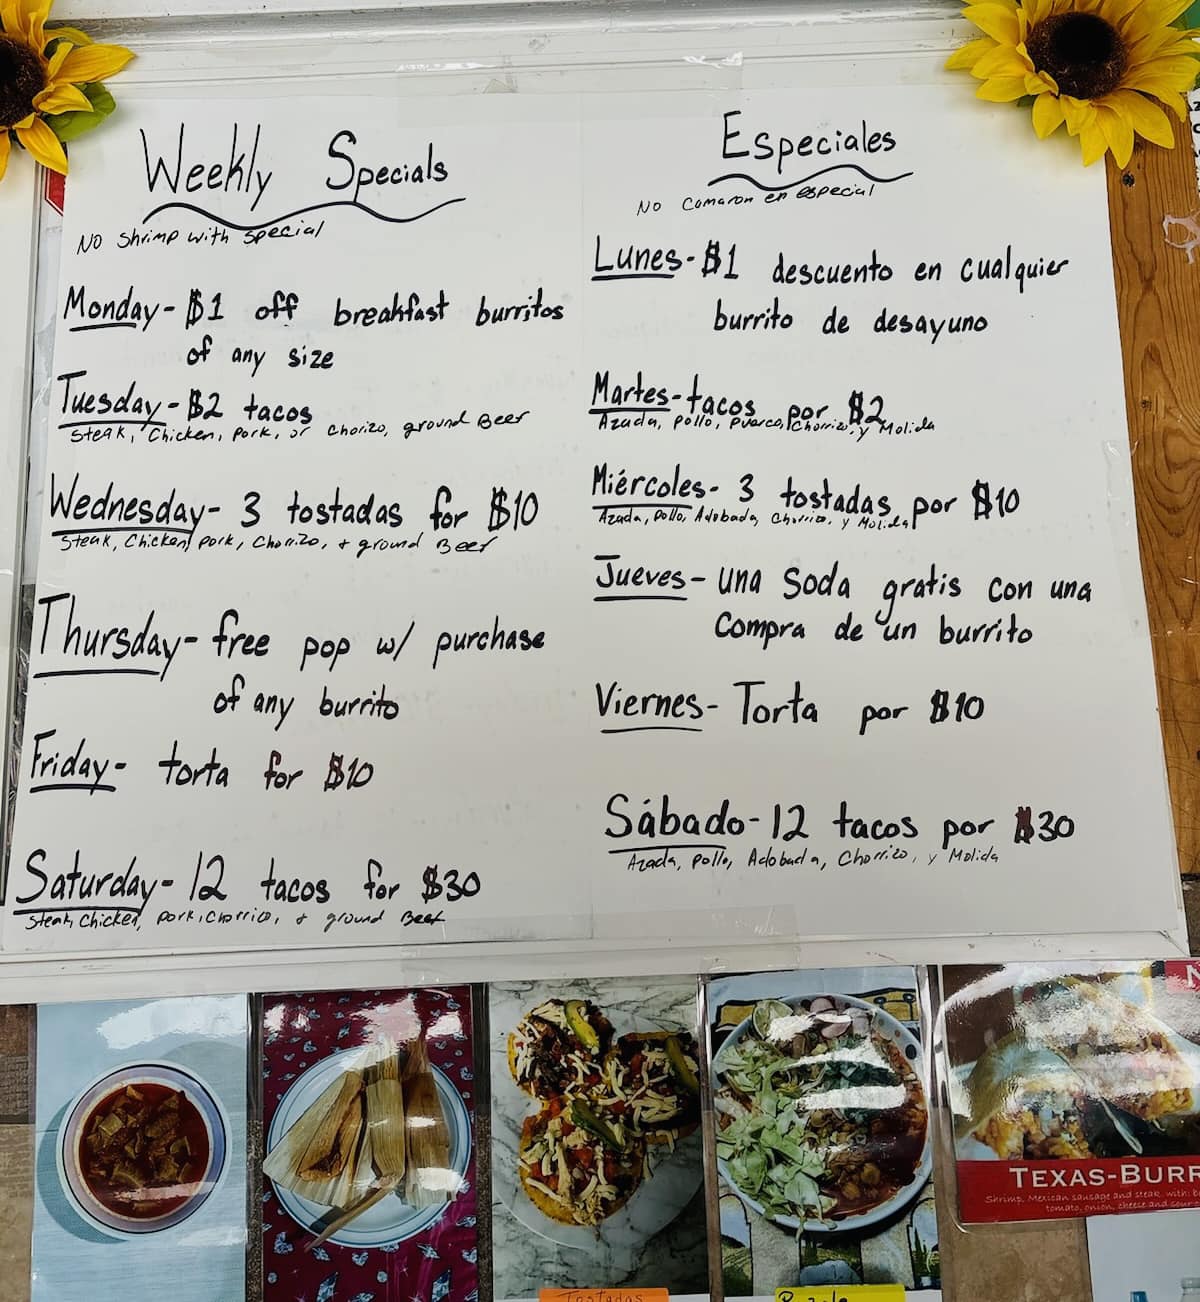 Weekly Specials
No shrimp with special
Monday - $1 off breakfast burritos
of any size
Tuesday - $2 tacos
Steak, Chicken, Pork, or Chorizo, ground Beef
Wednesday - 3 tostadas for $10
Steak, Chicken, Pork, Chorizo, + ground Beef
Thursday - free pop w/ purchase
of any burrito
Friday - torta for $10
Saturday - 12 tacos for $30
Steak, Chicken, Pork, Chorrizo, + ground Beef
Especiales
No Comaron en especial
Lunes - $1 descuento en cualquier
burrito de desayuno
Martes - tacos por $2
Azada, pollo, puerco, Chorrizo, y Molida
Miércoles - 3 tostadas por $10
Azada, pollo, Adobada, Chorrizo, y Molida
Jueves - una Soda gratis con una
Compra de un burrito
Viernes - Torta por $10
Sábado - 12 tacos por $30
Azada, pollo, Adobada, Chorrizo, y Molida
TEXAS-BURR
Shrimp, Mexican sausage and steak, with:
tomato, onion, cheese and sour
Tostadas
Pozole